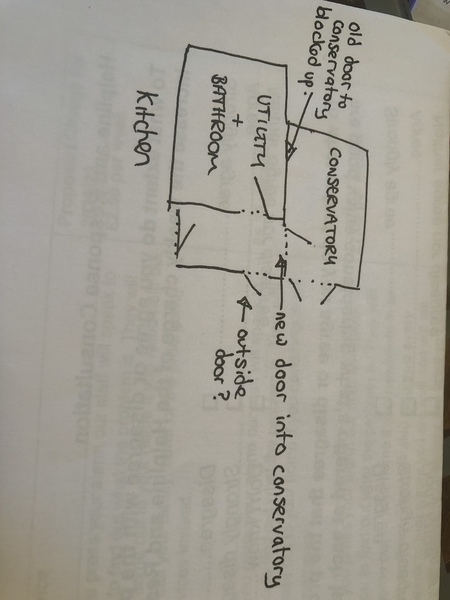 old door to
conservatory
blocked up.
CONSERVATORY
UTILITY
+
BATHROOM
new door into conservatory
outside
door?
Kitchen